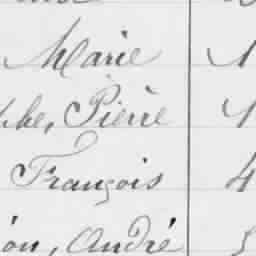 Marie 1
Pierre 1
François 4
ion, André 5